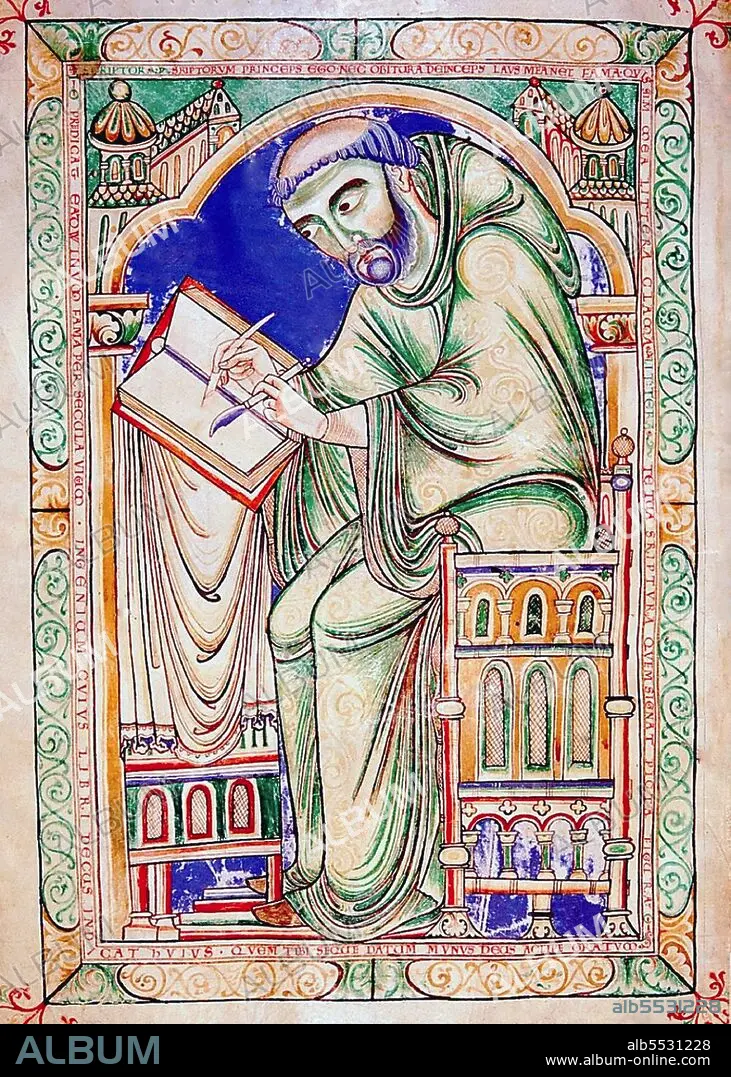 SCRIPTORUM PRINCEPS EGO NEC OBITURA DEINCEPS LAUS MEA NEC FAMA QVIS
SIM MEA LITTERA CLAMA LITTERA TE TUA SCRIPTURA QUEM SIGNAT PICTA FIGURA
PREDICAT EADWINVM FAMA PER SECULA VIVVM · INGENIVM CVIVS LIBRI DECVS IND
CAT HVIVS · QVEM TIBI SEQUE DATUM MVNVS DEVS
ALBUM
alb5531228
ALBUM
alb5531228
www.album-online.com